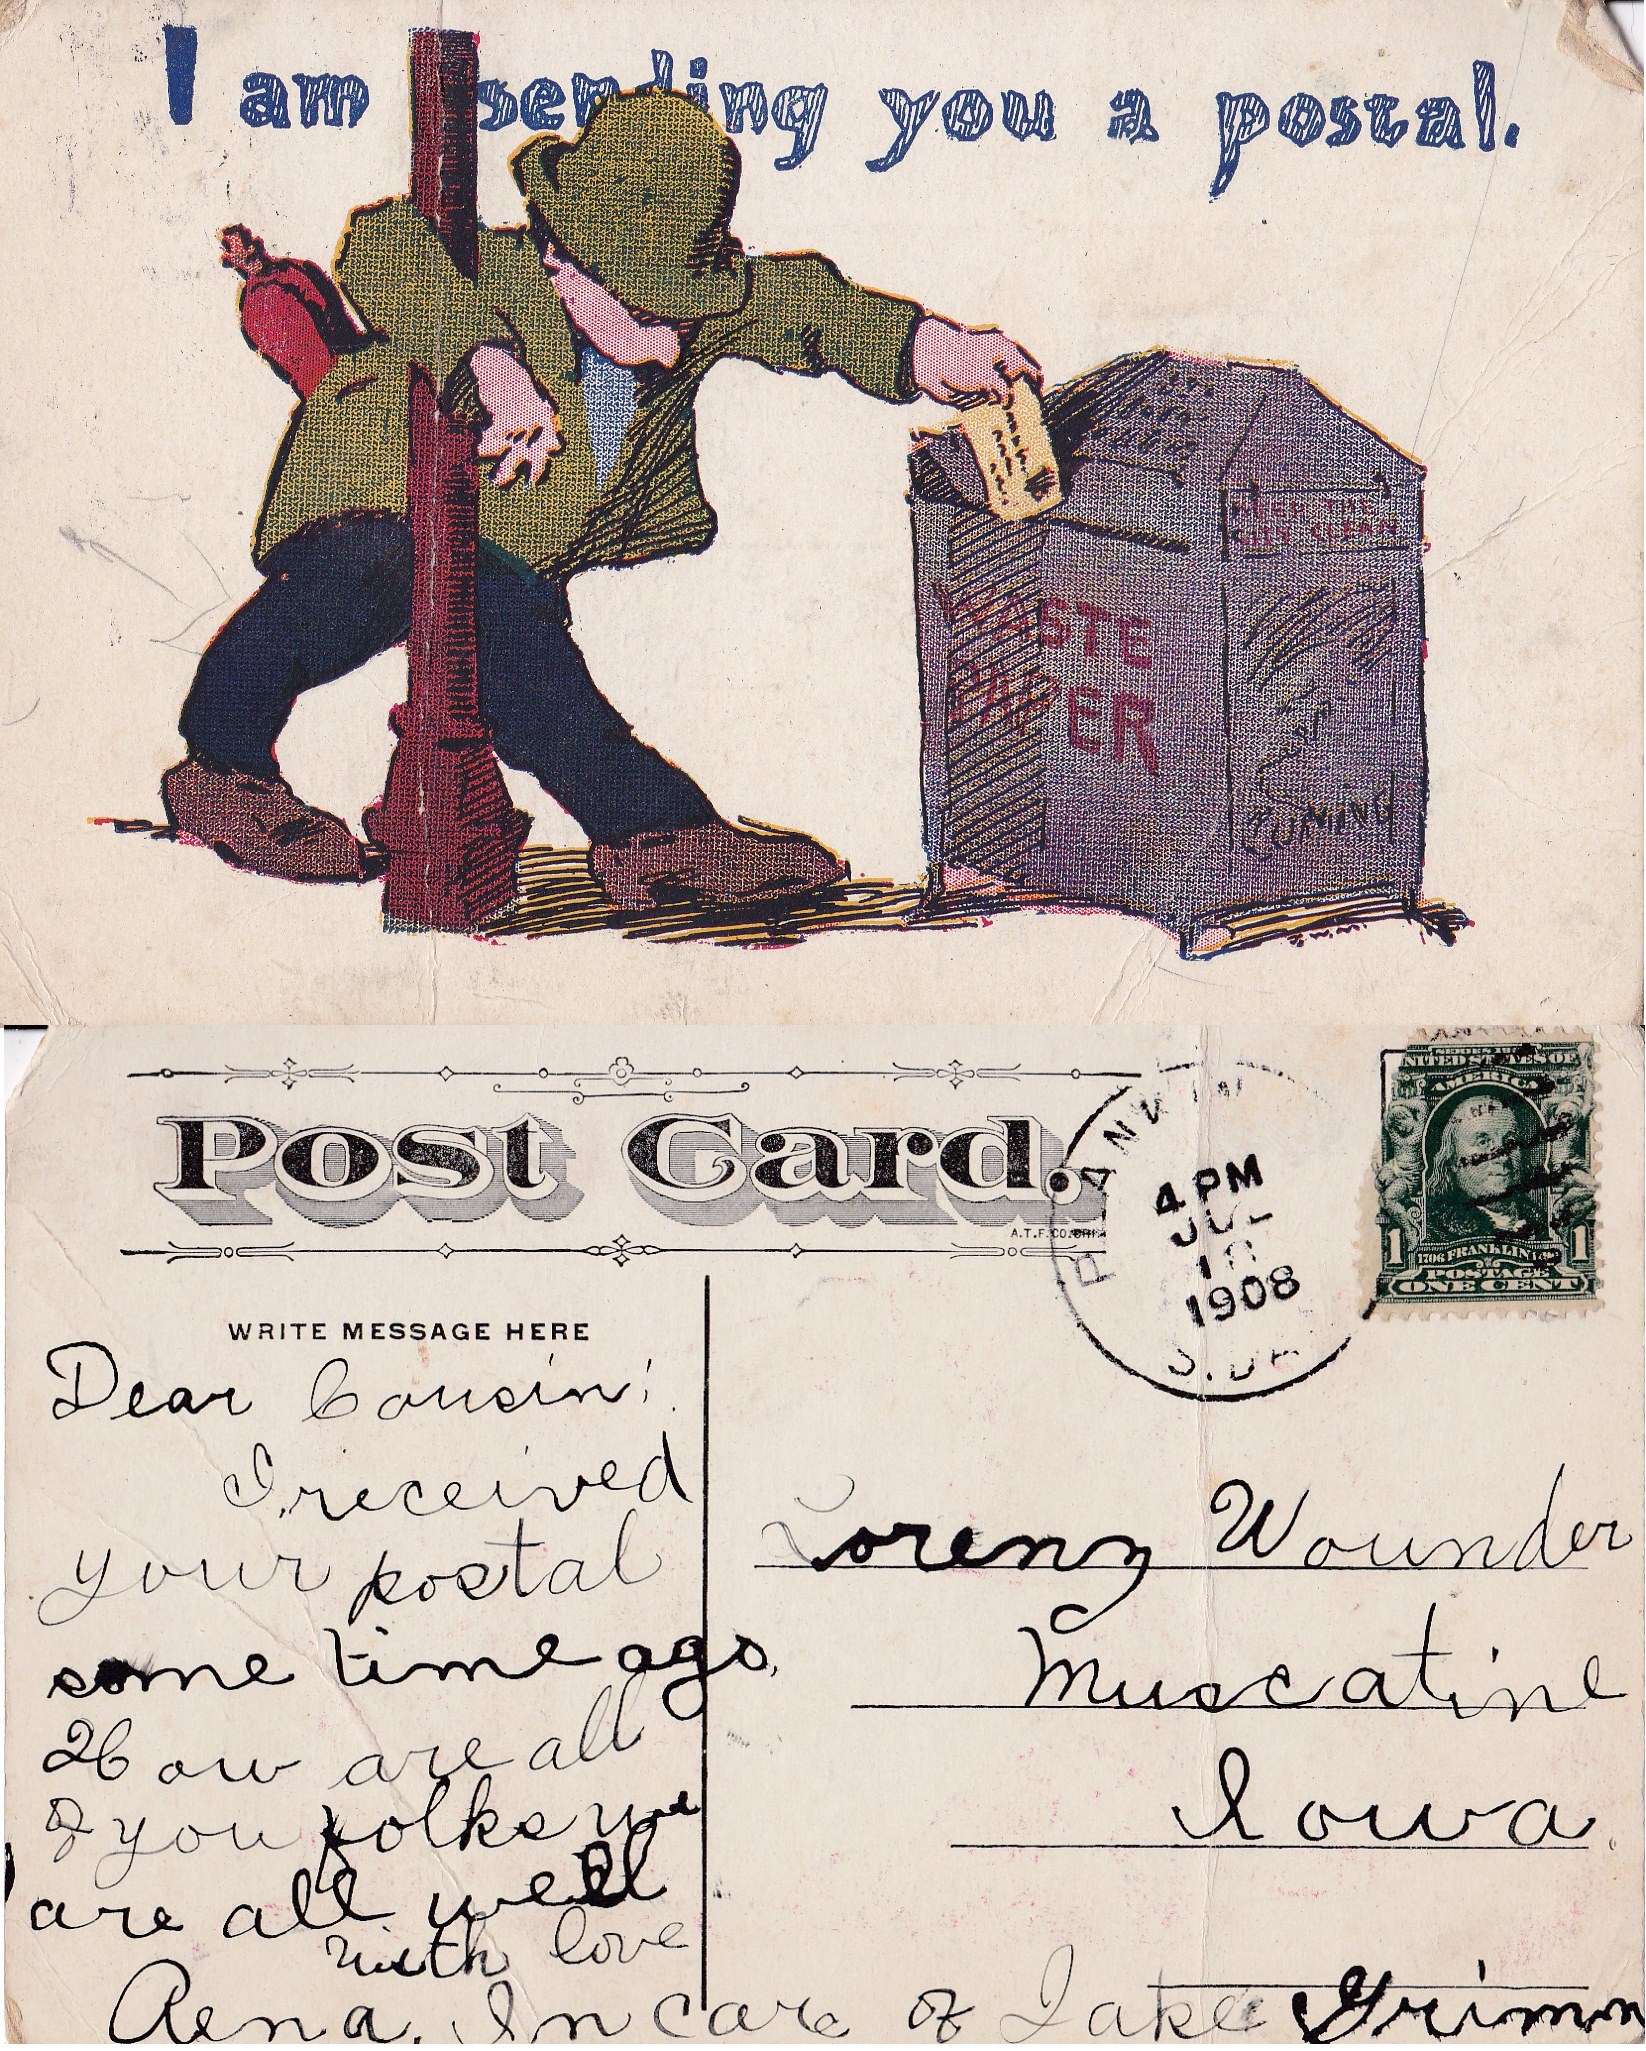 I am sending you a postal.
KEEP THE
CITY CLEAN
WASTE
PAPER
Post Card.
A.T.F.CO.
4 PM
JUL
1908
S.DA
SERIES
UNITED STATES OF
AMERICA
1 1706 FRANKLIN 1790 1
POSTAGE
ONE CENT
WRITE MESSAGE HERE
Dear Cousin;
I received
your postal
some time ago.
How are all
of you folks we
are all well
with love
Rena. In care of Jake Grimm
Lorenz Wounder
Muscatine
Iowa.